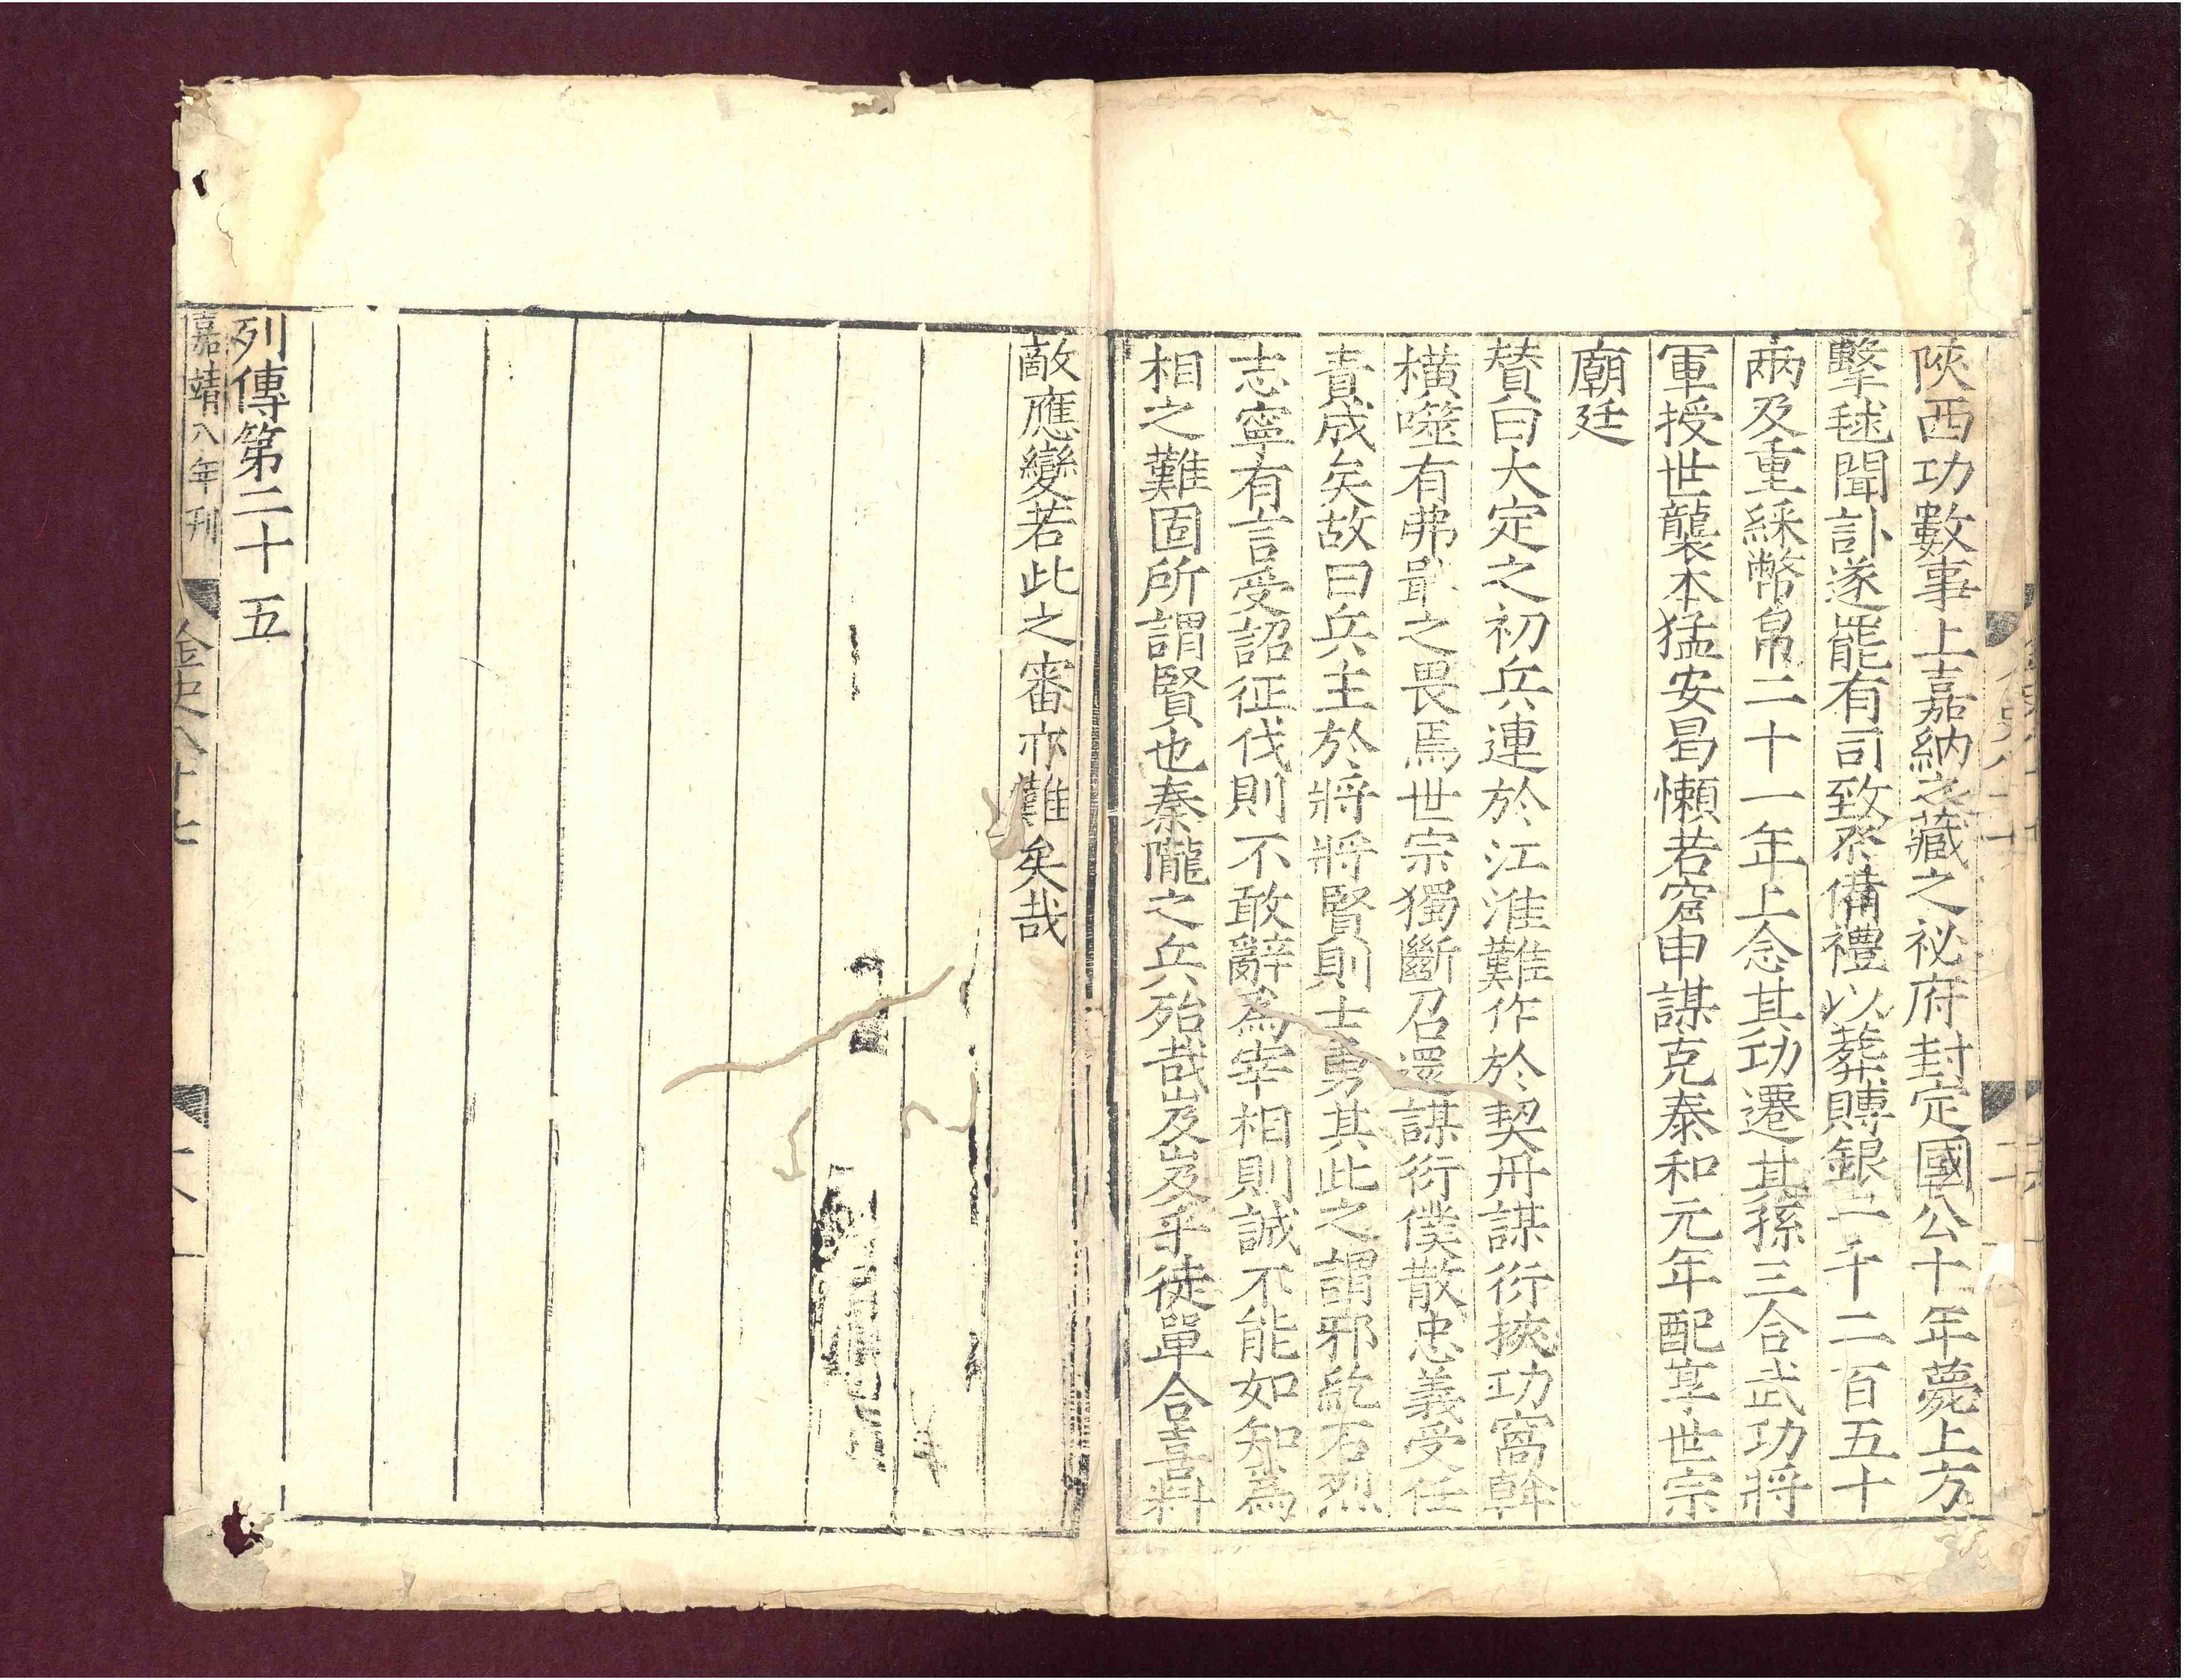 陜西功數事上嘉納之藏之祕府封定國公十年薨上方
擊毬聞訃遂罷有司致祭備禮以葬賻銀一千二百五十
兩及重綵幣帛二十一年上念其功遷其孫三合武功將
軍授世襲本猛安曷懶若窟申謀克泰和元年配享世宗
廟廷
贊曰大定之初兵連於江淮難作於契丹謀衍挾功窩斡
橫噬有弗戢之畏焉世宗獨斷召還謀衍僕散忠義受任
責成矣故曰兵主於將將賢則士勇其此之謂邪紇石烈
志寧有言受詔征伐則不敢辭爲宰相則誠不能如知爲
相之難固所謂賢也秦隴之兵殆哉岌岌乎徒單合喜料
敵應變若此之審亦難矣哉
列傳第二十五
嘉靖八年刊
金史八十七